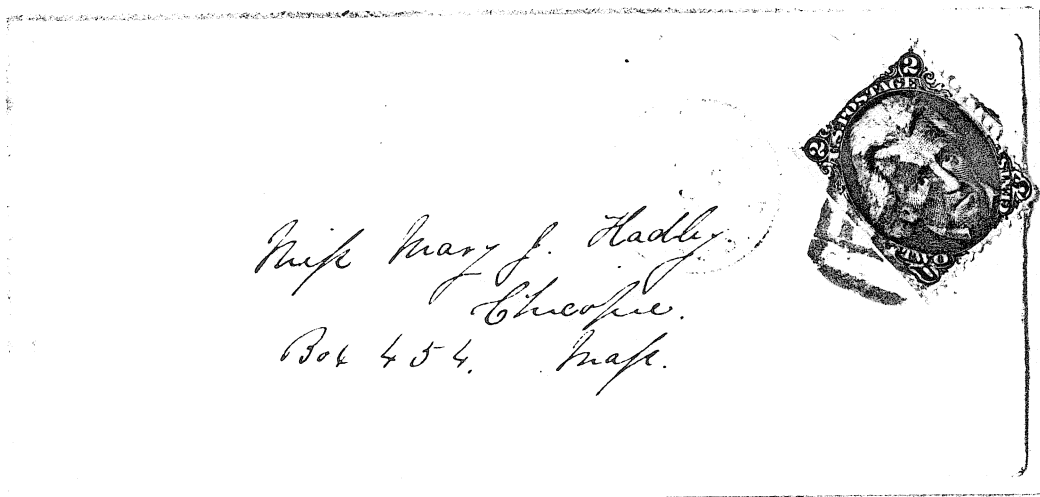 2
U.S. POSTAGE
2
2
TWO
Miss Mary J. Hadley.
Chicopee.
Box 454. Mass.